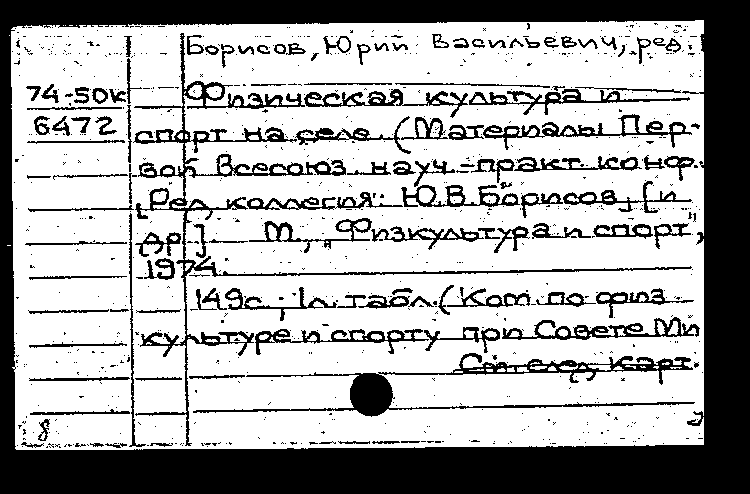 Борисов, Юрий Васильевич, ред.
74-50к
6472
Физическая культура и
спорт на селе. (Материалы Пер-
вой Всесоюз. науч.-практ. конф.
[Ред. коллегия: Ю.В. Борисов, [и
др.]. М., „Физкультура и спорт",
1974.
149с.; 1л. табл. (Ком. по физ.
культуре и спорту при Совете Ми
См. след. карт.
8